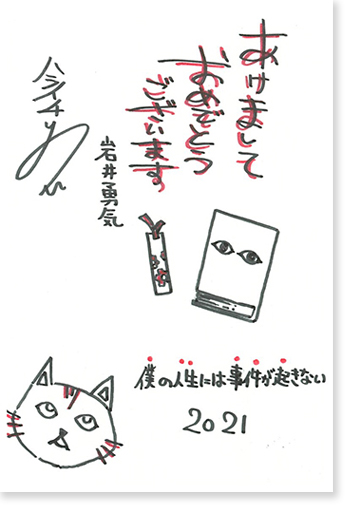 あけまして
おめでとう
ございます。
岩井勇気
ハライチ
僕の人生には事件が起きない
2021